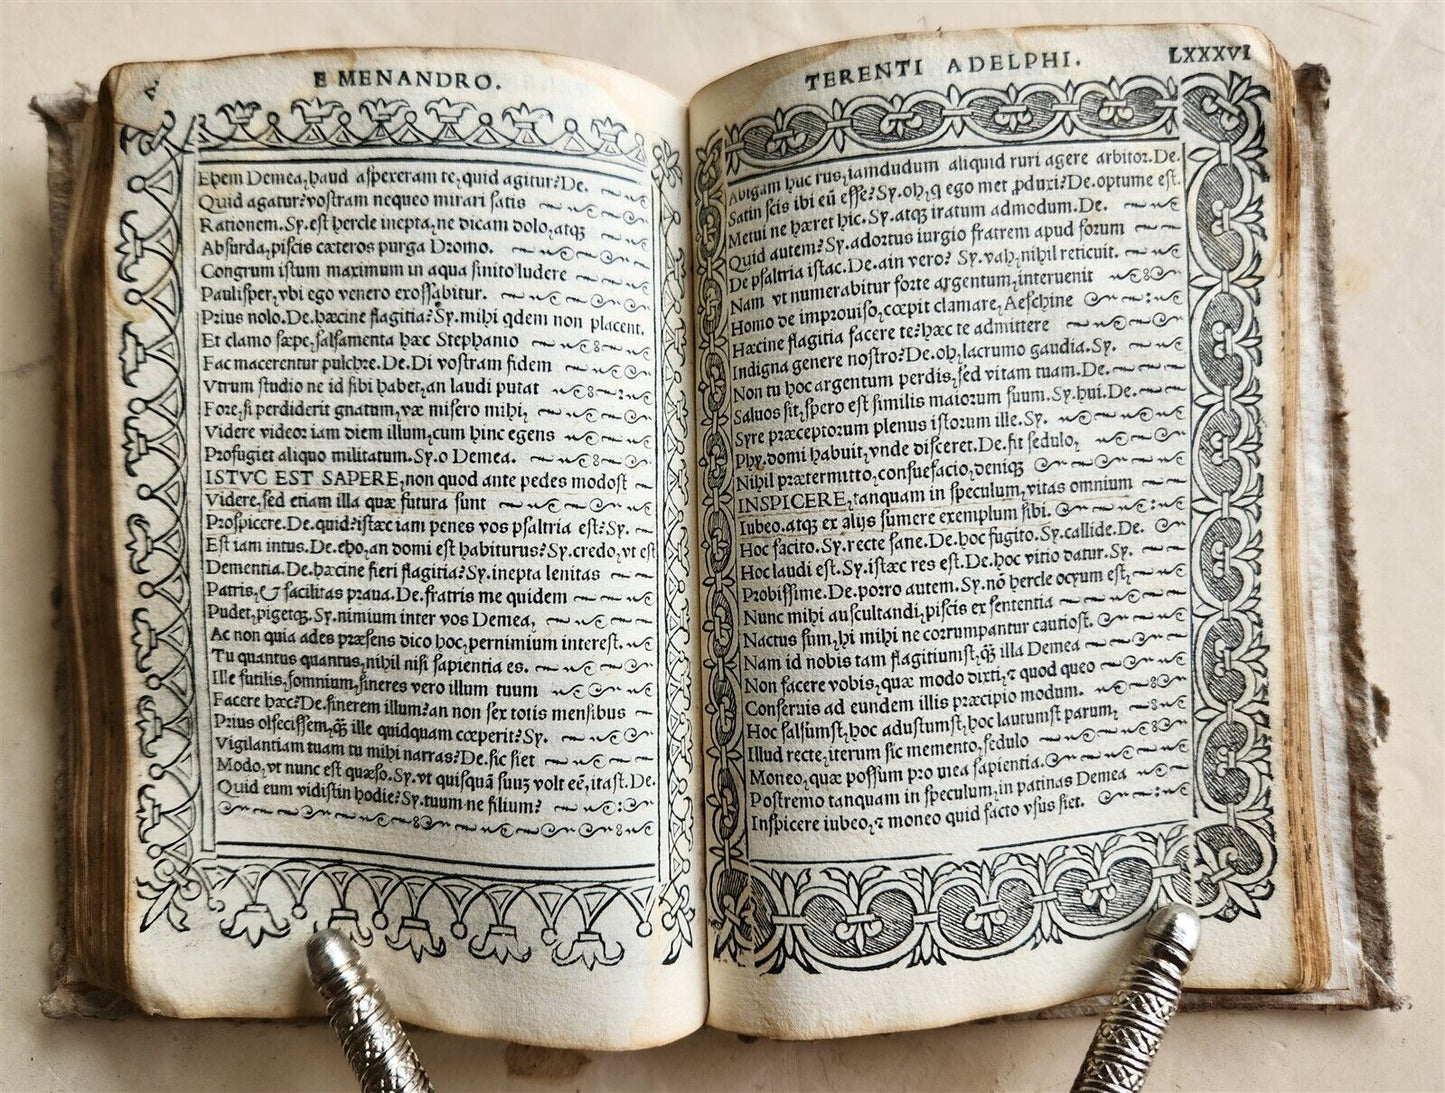 E MENANDRO.
Ehem Demea, haud aspexeram te, quid agitur? De.
Quid agatur? vostram nequeo mirari satis
Rationem. Sy. est hercle inepta, ne dicam dolo, atqȝ
Absurda, piscis cæteros purga Dromo.
Congrum istum maximum in aqua sinito ludere
Paulisper, vbi ego venero exossabitur.
Prius nolo. De. hæcine flagitia? Sy. mihi qdem non placent.
Et clamo sæpe, salsamenta hæc Stephanio
Fac macerentur pulchre. De. Di vostram fidem
Vtrum studio ne id sibi habet, an laudi putat
Fore, si perdiderit gnatum, væ misero mihi,
Videre videor iam diem illum, cum hinc egens
Profugiet aliquo militatum. Sy. o Demea.
ISTVC EST SAPERE, non quod ante pedes modost
Videre, sed etiam illa quæ futura sunt
Prospicere. De. quid? istæc iam penes vos psaltria est? Sy.
Est iam intus. De. eho, an domi est habiturus? Sy. credo, vt est
Dementia. De. hæcine fieri flagitia? Sy. inepta lenitas
Patris, & facilitas praua. De. fratris me quidem
Pudet, pigetqȝ. Sy. nimium inter vos Demea,
Ac non quia ades præsens dico hoc, pernimium interest.
Tu quantus quantus, nihil nisi sapientia es.
Ille futilis, somnium, sineres vero illum tuum
Facere hæc? De. sinerem illum? an non sex totis mensibus
Prius olfecissem, qȝ̃ ille quidquam cœperit? Sy.
Vigilantiam tuam tu mihi narras? De. sic siet
Modo, vt nunc est quæso. Sy. vt quisquã suuȝ volt eẽ, itast. De.
Quid eum vidistin hodie? Sy. tuum ne filium?
TERENTI ADELPHI. LXXXVI
Abigam huc rus, iamdudum aliquid ruri agere arbitor. De.
Satin scis ibi eũ esse? Sy. oh, q ego met ꝓduxi? De. optume est.
Metui ne hæret hic. Sy. atqȝ iratum admodum. De.
Quid autem? Sy. adortus iurgio fratrem apud forum
De psaltria istac. De. ain vero? Sy. vah, nihil reticuit.
Nam vt numerabitur forte argentum, interuenit
Homo de improuiso, cœpit clamare, Aeschine
Hæcine flagitia facere te? hæc te admittere
Indigna genere nostro? De. oh, lacrumo gaudia. Sy.
Non tu hoc argentum perdis, sed vitam tuam. De.
Saluos sit, spero est similis maiorum suum. Sy. hui. De.
Syre præceptorum plenus istorum ille. Sy.
Phy. domi habuit, vnde disceret. De. fit sedulo,
Nihil prætermitto, consuefacio, deniqȝ
INSPICERE, tanquam in speculum, vitas omnium
Iubeo. atqȝ ex alijs sumere exemplum sibi.
Hoc facito. Sy. recte sane. De. hoc fugito. Sy. callide. De.
Hoc laudi est. Sy. istæc res est. De. hoc vitio datur. Sy.
Probissime. De. porro autem. Sy. nõ hercle ocyum est,
Nunc mihi auscultandi, piscis ex sententia
Nactus sum, hi mihi ne corrumpantur cautiost.
Nam id nobis tam flagitiumst, qȝ̃ illa Demea
Non facere vobis, quæ modo dixti, ⁊ quod queo
Conseruis ad eundem illis præcipio modum.
Hoc salsumst, hoc adustumst, hoc lautumst parum,
Illud recte, iterum sic memento, sedulo
Moneo, quæ possum pro mea sapientia.
Postremo tanquam in speculum, in patinas Demea
Inspicere iubeo, ⁊ moneo quid facto vsus siet.